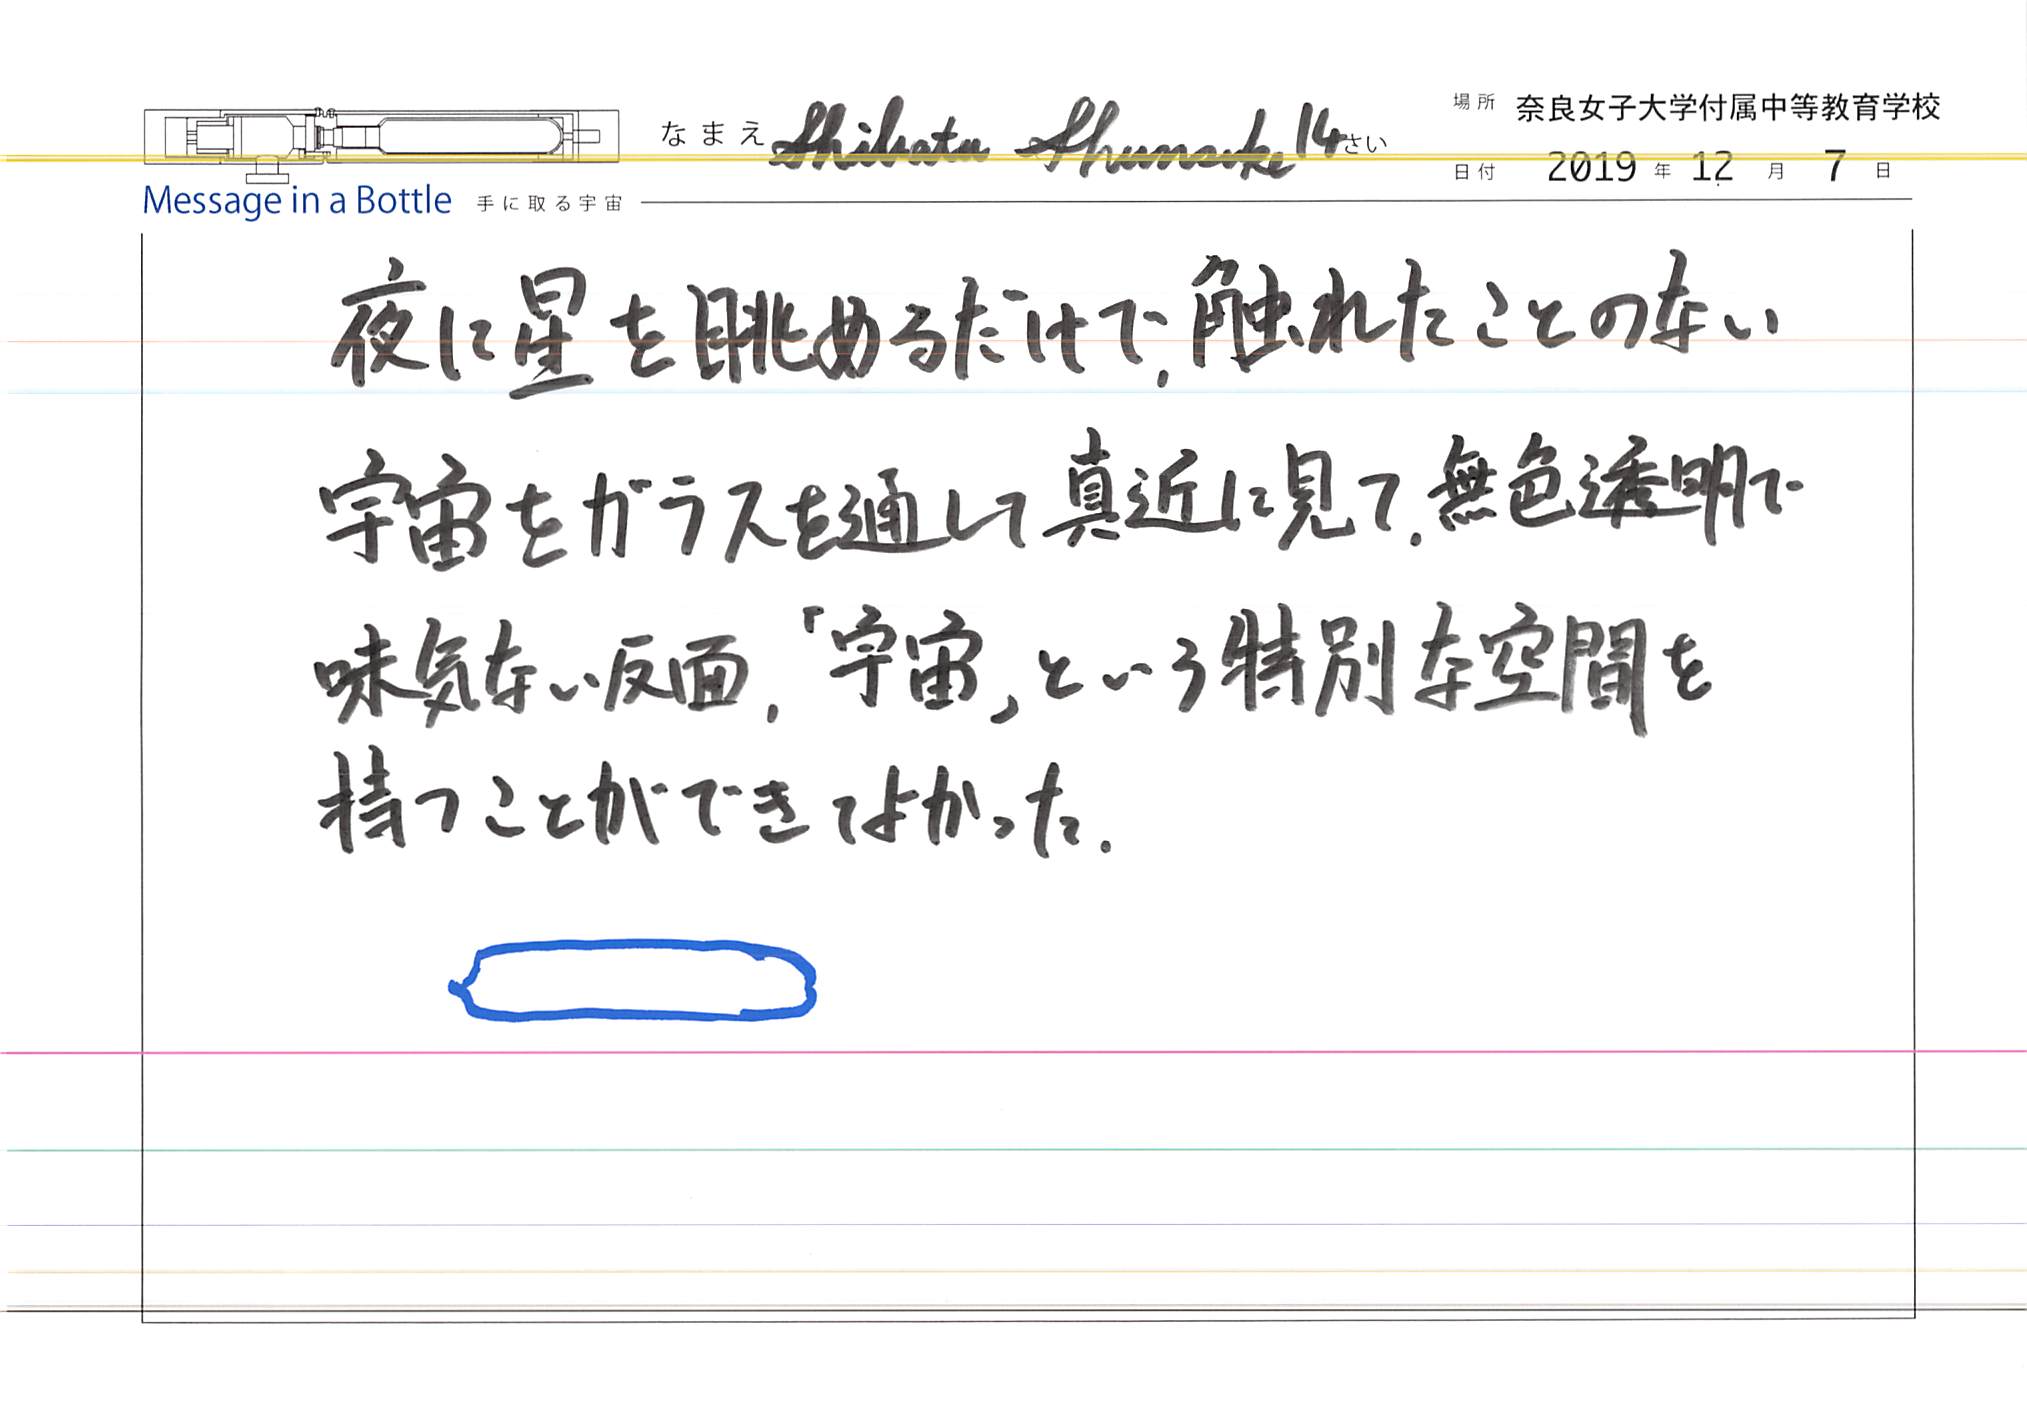 なまえ Shibata Shunsuke 14さい
場所 奈良女子大学付属中等教育学校
日付 2019年 12月 7日
Message in a Bottle 手に取る宇宙
夜に星を眺めるだけで,触れたことのない
宇宙をガラスを通して真近に見て.無色透明で
味気ない反面,「宇宙」という特別な空間を
持つことができてよかった.